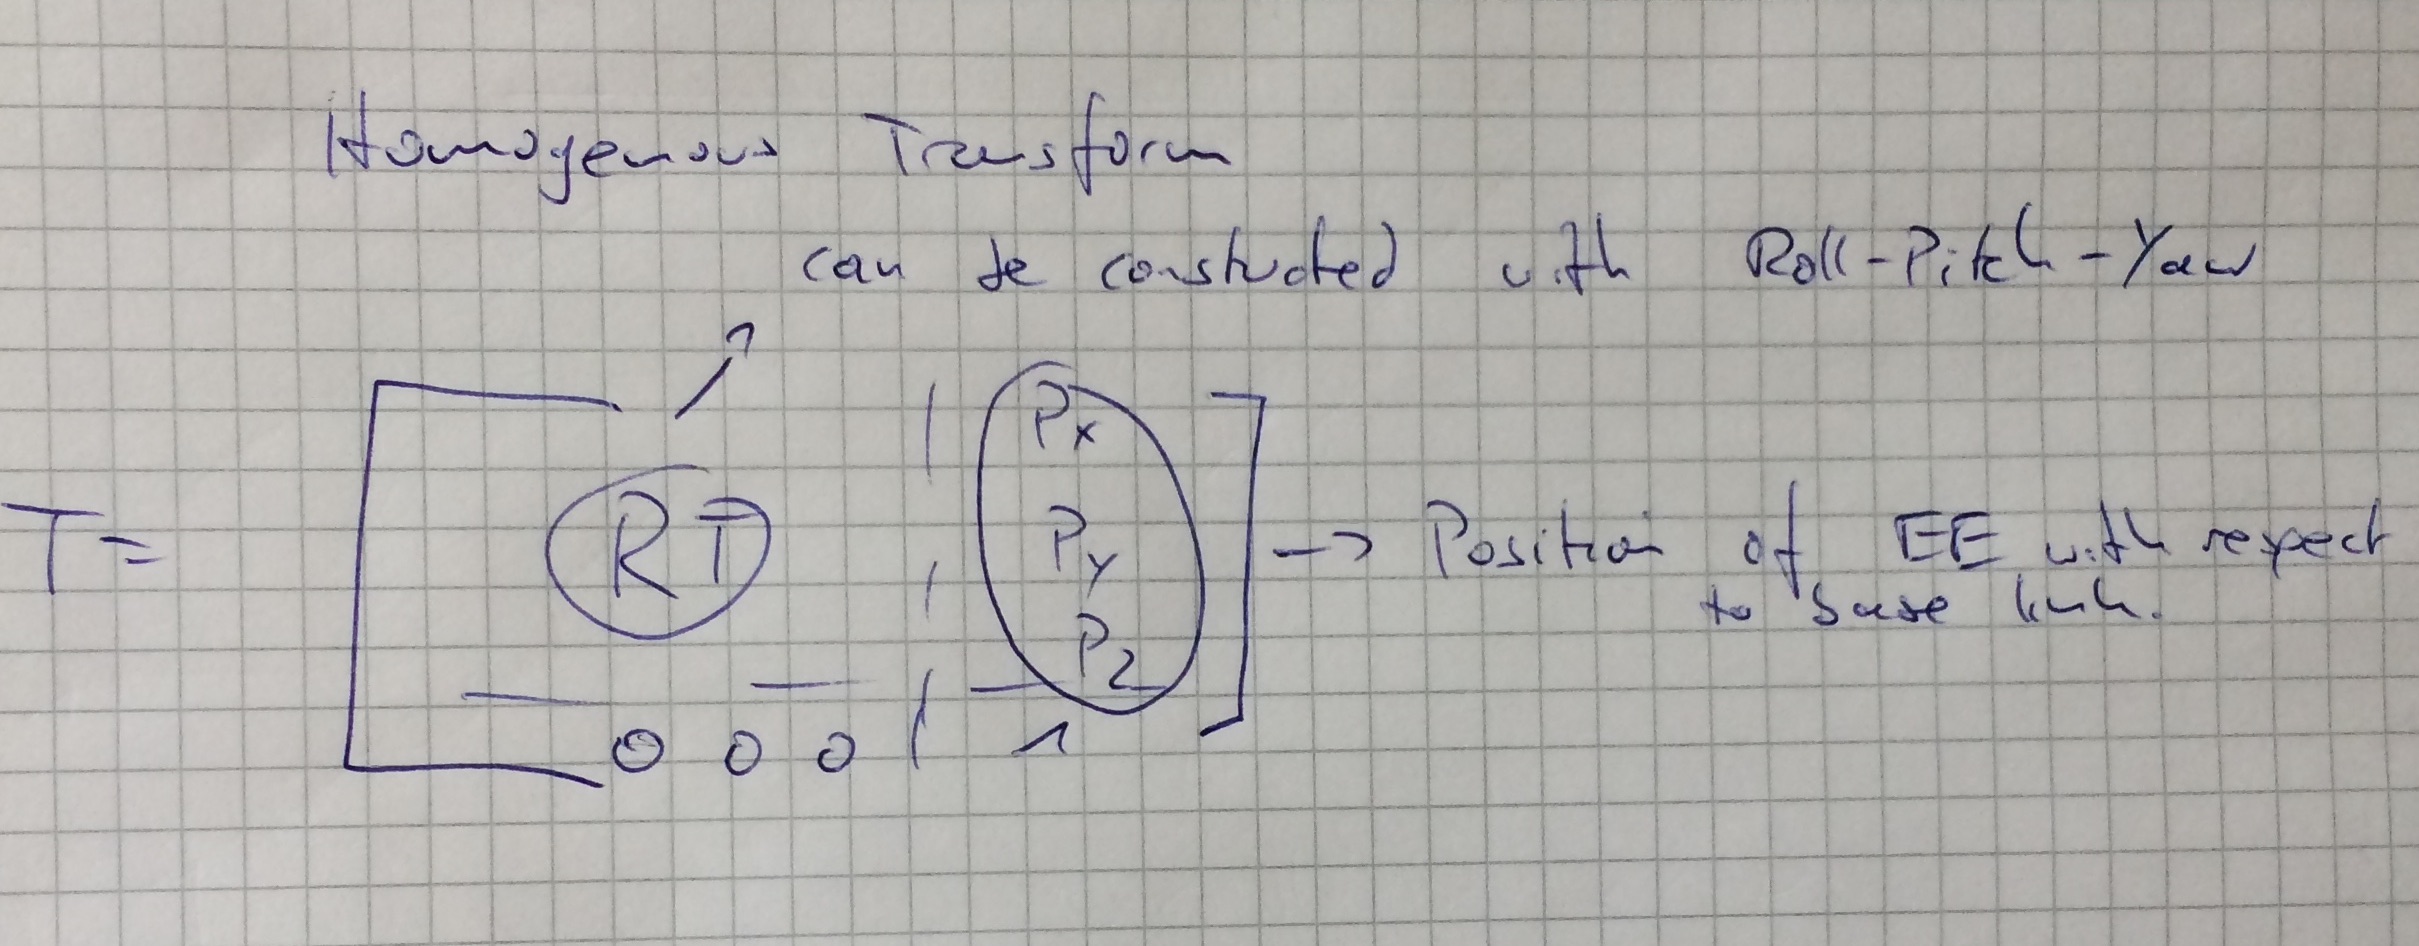 Homogenous Transform
can be constructed with Roll-Pitch-Yaw
Px
T= RT Py -> Position of EE with respect
to base link.
Pz
0 0 0 1